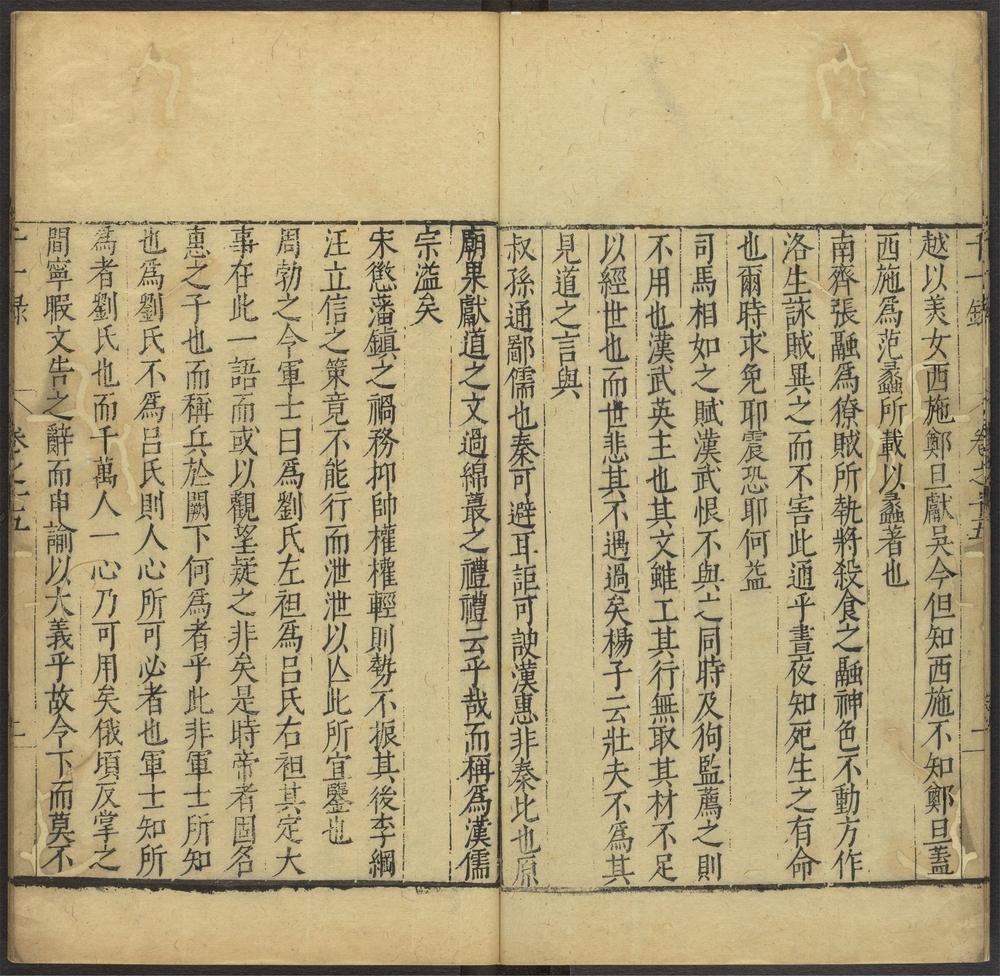 千一錄 卷之十五 二
越以美女西施鄭旦獻吳今但知西施不知鄭旦蓋
西施爲范蠡所載以蠡著也
南齊張融爲獠賊所執將殺食之融神色不動方作
洛生詠賊異之而不害此通乎晝夜知死生之有命
也爾時求免耶震恐耶何益
司馬相如之賦漢武恨不與之同時及狗監薦之則
不用也漢武英主也其文雖工其行無取其材不足
以經世也而世悲其不遇過矣楊子云壯夫不爲其
見道之言與
叔孫通鄙儒也秦可避耳詎可諛漢惠非秦比也原
廟果獻道之文過綿蕞之禮禮云乎哉而稱爲漢儒
宗溢矣
宋懲藩鎮之禍務抑帥權權輕則勢不振其後李綱
汪立信之策竟不能行而泄泄以亾此所宜鑒也
周勃之令軍士曰爲劉氏左袒爲呂氏右袒其定大
事在此一語而或以觀望疑之非矣是時帝者固名
惠之子也而稱兵於闕下何爲者乎此非軍士所知
也爲劉氏不爲呂氏則人心所可必者也軍士知所
爲者劉氏也而千萬人一心乃可用矣俄頃反掌之
間寧暇文告之辭而申諭以大義乎故令下而莫不
千一錄 卷之十五 二